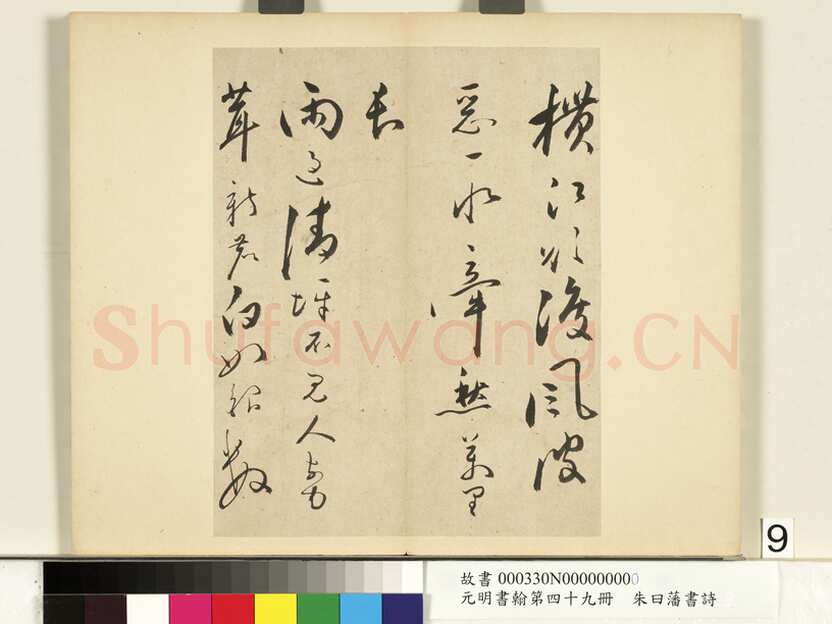 橫江欲渡風波
惡一水牽愁萬里
長
雨過清不見人
茸新白如銀數
Shufawang.CN
9
故書 000330N000000000
元明書翰第四十九冊 朱曰藩書詩